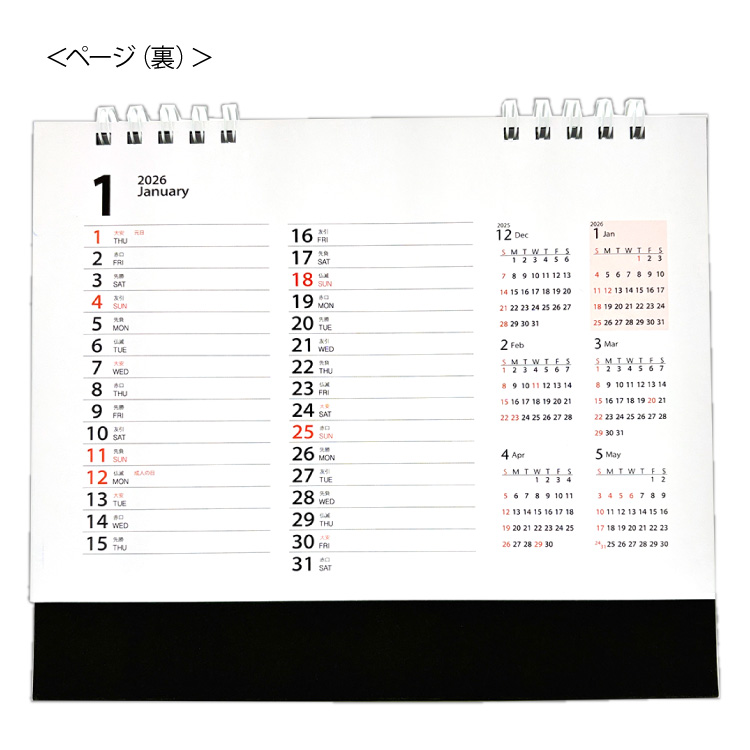 ＜ページ（裏）＞
1
2026
January
1 大安 元日
THU
2 赤口
FRI
3 先勝
SAT
4 友引
SUN
5 先負
MON
6 仏滅
TUE
7 大安
WED
8 赤口
THU
9 先勝
FRI
10 友引
SAT
11 先負
SUN
12 仏滅 成人の日
MON
13 大安
TUE
14 赤口
WED
15 先勝
THU
16 友引
FRI
17 先負
SAT
18 仏滅
SUN
19 赤口
MON
20 先勝
TUE
21 友引
WED
22 先負
THU
23 仏滅
FRI
24 大安
SAT
25 赤口
SUN
26 先勝
MON
27 友引
TUE
28 先負
WED
29 仏滅
THU
30 大安
FRI
31 赤口
SAT
2025
12 Dec
S M T W T F S
1 2 3 4 5 6
7 8 9 10 11 12 13
14 15 16 17 18 19 20
21 22 23 24 25 26 27
28 29 30 31
2026
1 Jan
S M T W T F S
1 2 3
4 5 6 7 8 9 10
11 12 13 14 15 16 17
18 19 20 21 22 23 24
25 26 27 28 29 30 31
2 Feb
S M T W T F S
1 2 3 4 5 6 7
8 9 10 11 12 13 14
15 16 17 18 19 20 21
22 23 24 25 26 27 28
3 Mar
S M T W T F S
1 2 3 4 5 6 7
8 9 10 11 12 13 14
15 16 17 18 19 20 21
22 23 24 25 26 27 28
29 30 31
4 Apr
S M T W T F S
1 2 3 4
5 6 7 8 9 10 11
12 13 14 15 16 17 18
19 20 21 22 23 24 25
26 27 28 29 30
5 May
S M T W T F S
1 2
3 4 5 6 7 8 9
10 11 12 13 14 15 16
17 18 19 20 21 22 23
24 31 25 26 27 28 29 30